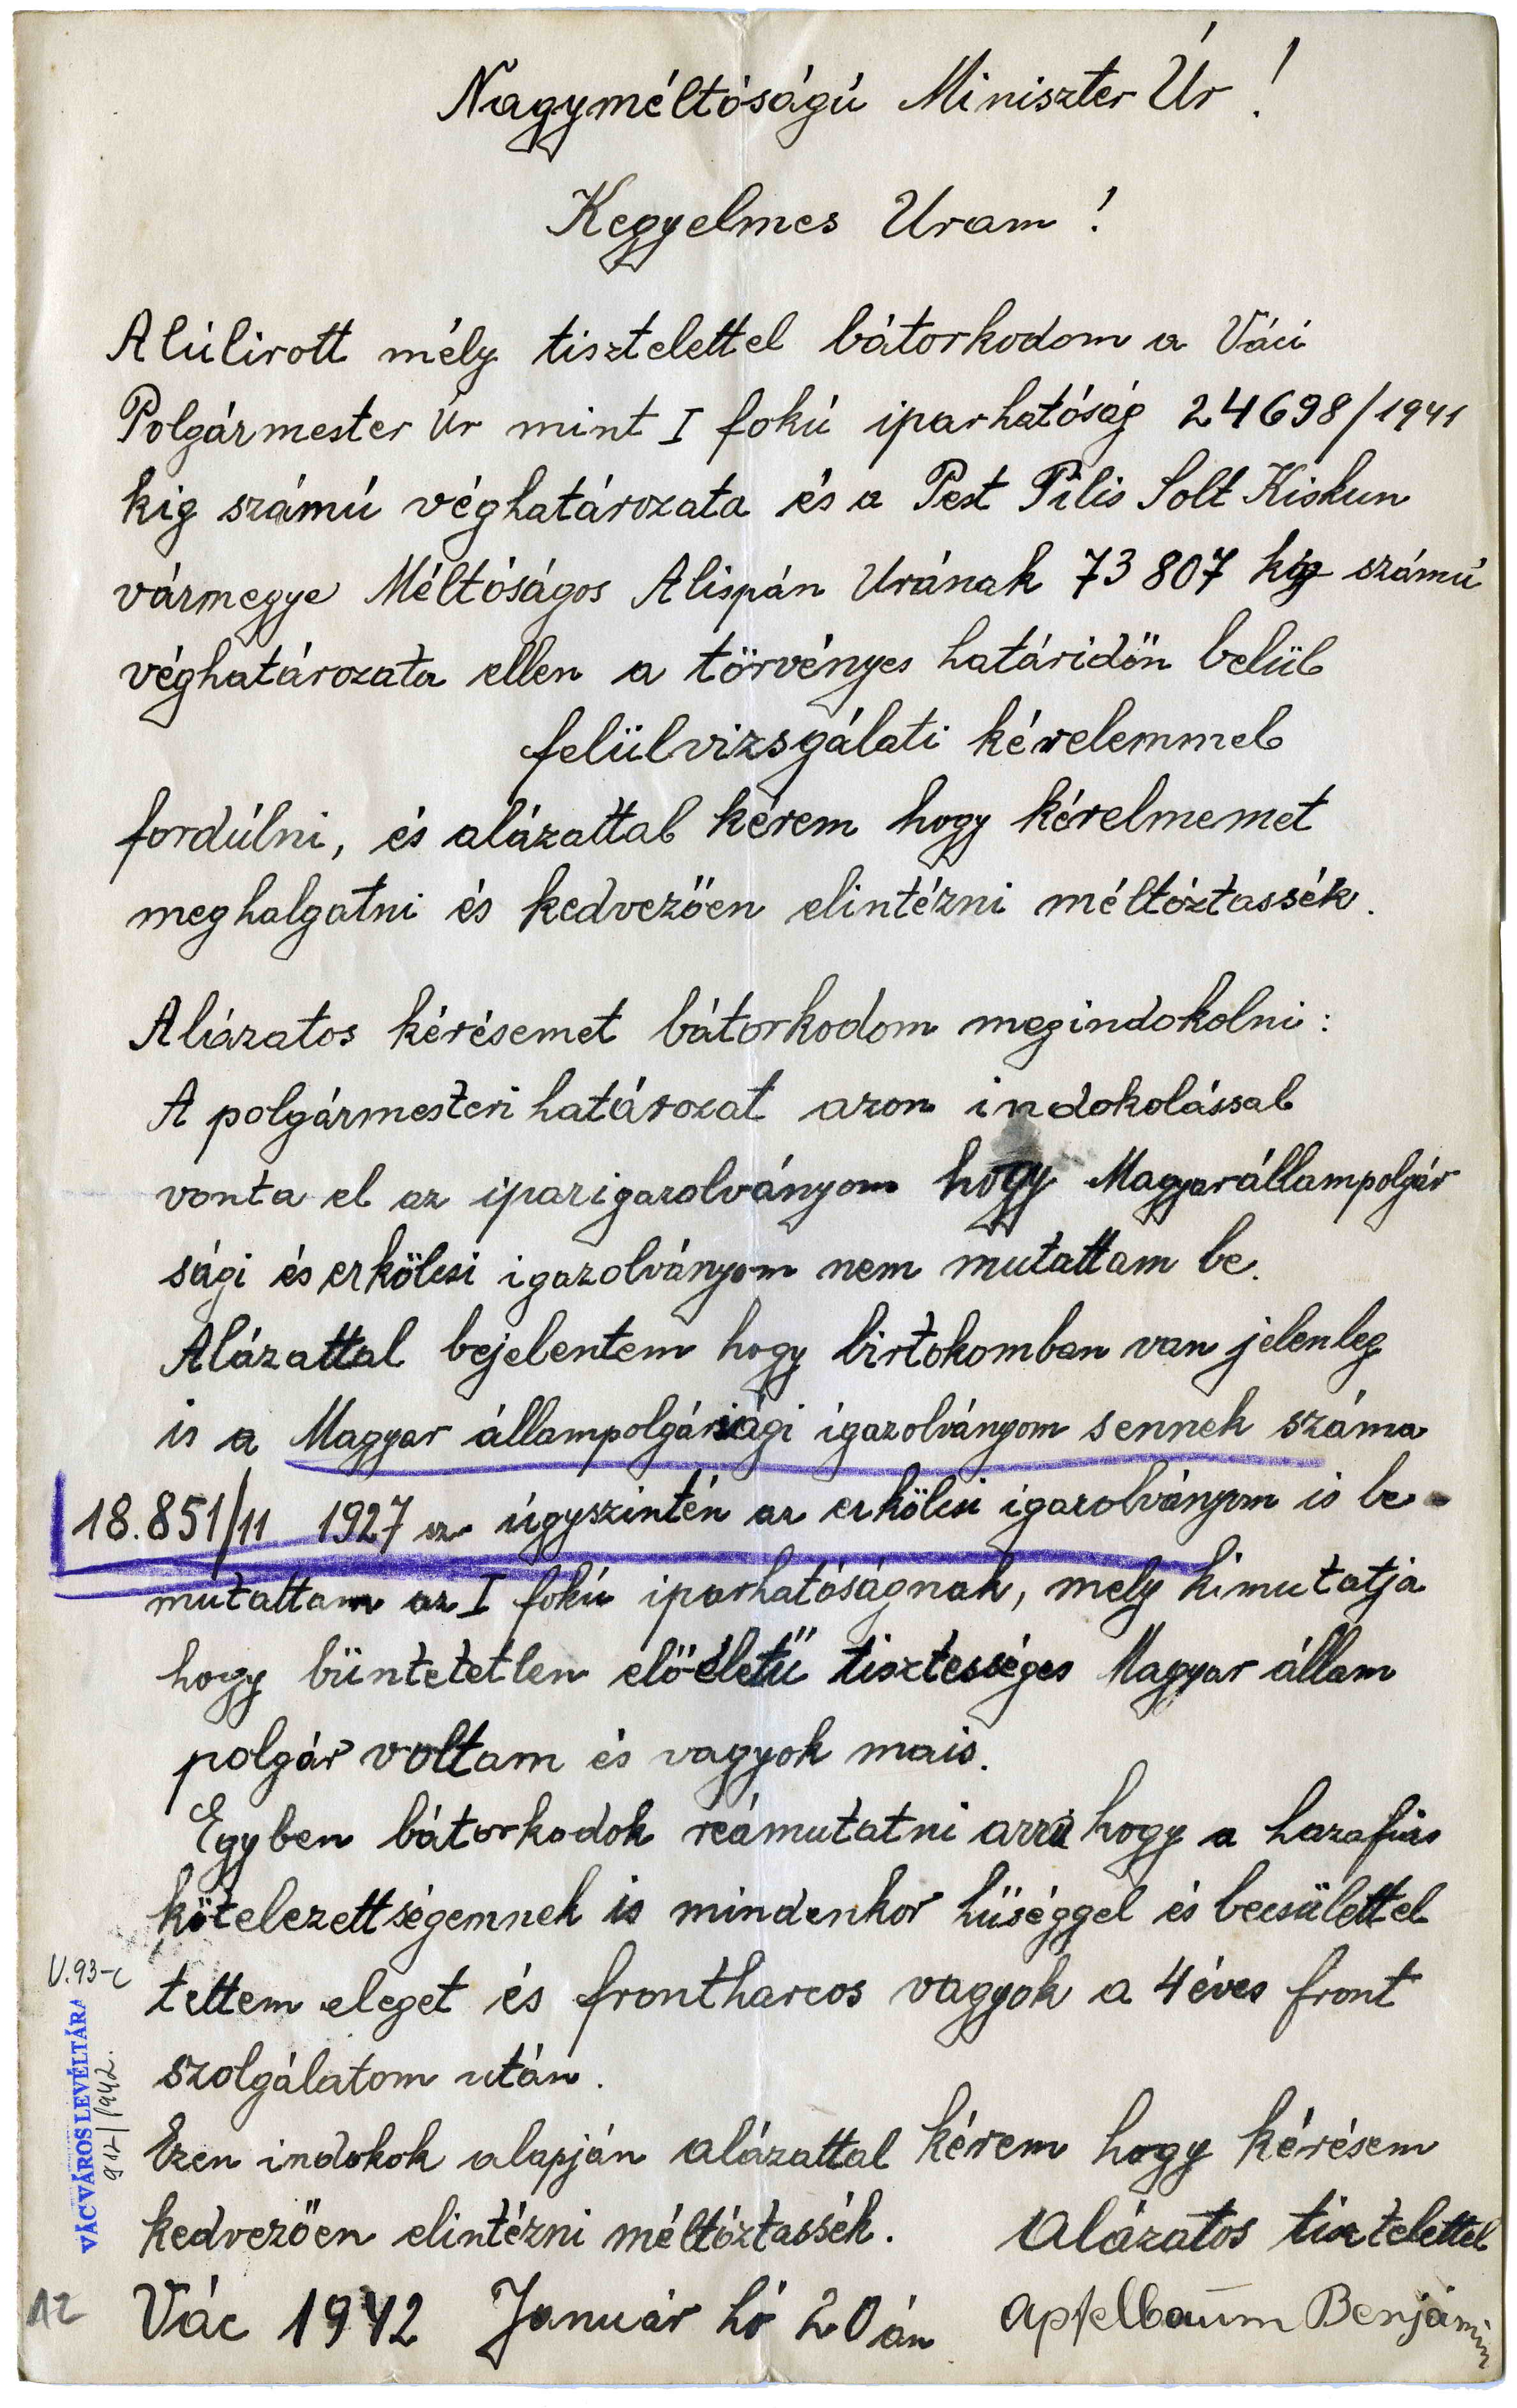 Nagyméltóságú Miniszter Úr!
Kegyelmes Uram!
Alúlirott mély tisztelettel bátorkodom a Váci
Polgármester Úr mint I fokú iparhatóság 24698/1941
kig számú véghatározata és a Pest Pilis Solt Kiskun
vármegye Méltóságos Alispán Urának 73807 kig számú
véghatározata ellen a törvényes határidőn belül
felülvizsgálati kérelemmel
fordúlni, és alázattal kérem hogy kérelmemet
meghalgatni és kedvezően elintézni méltóztassék.
Alázatos kérésemet bátorkodom megindokolni:
A polgármesteri határozat azon indokolással
vonta el az iparigazolványom hogy Magyarállampolgár
sági és erkölcsi igazolványom nem mutattam be.
Alázattal bejelentem hogy birtokomban van jelenleg
is a Magyar állampolgársági igazolványom s ennek száma
18.851/11 1927 sz úgyszintén az erkölcsi igazolványom is be-
mutattam az I fokú iparhatóságnak, mely kimutatja
hogy büntetetlen előéletű tisztességes Magyar állam
polgár voltam és vagyok mais.
Egyben bátorkodok reámutatni arra hogy a hazafias
kötelezettségemnek is mindenkor hűséggel és becsülettel
tettem eleget és frontharcos vagyok a 4 éves front
szolgálatom után.
Ezen indokok alapján alázattal kérem hogy kérésem
kedvezően elintézni méltóztassék. Alázatos tisztelettel
Vác 1942 Január hó 20 án Apfelbaum Benjámin
V.93-c
VÁC VÁROS LEVÉLTÁRA
912/1942.
12